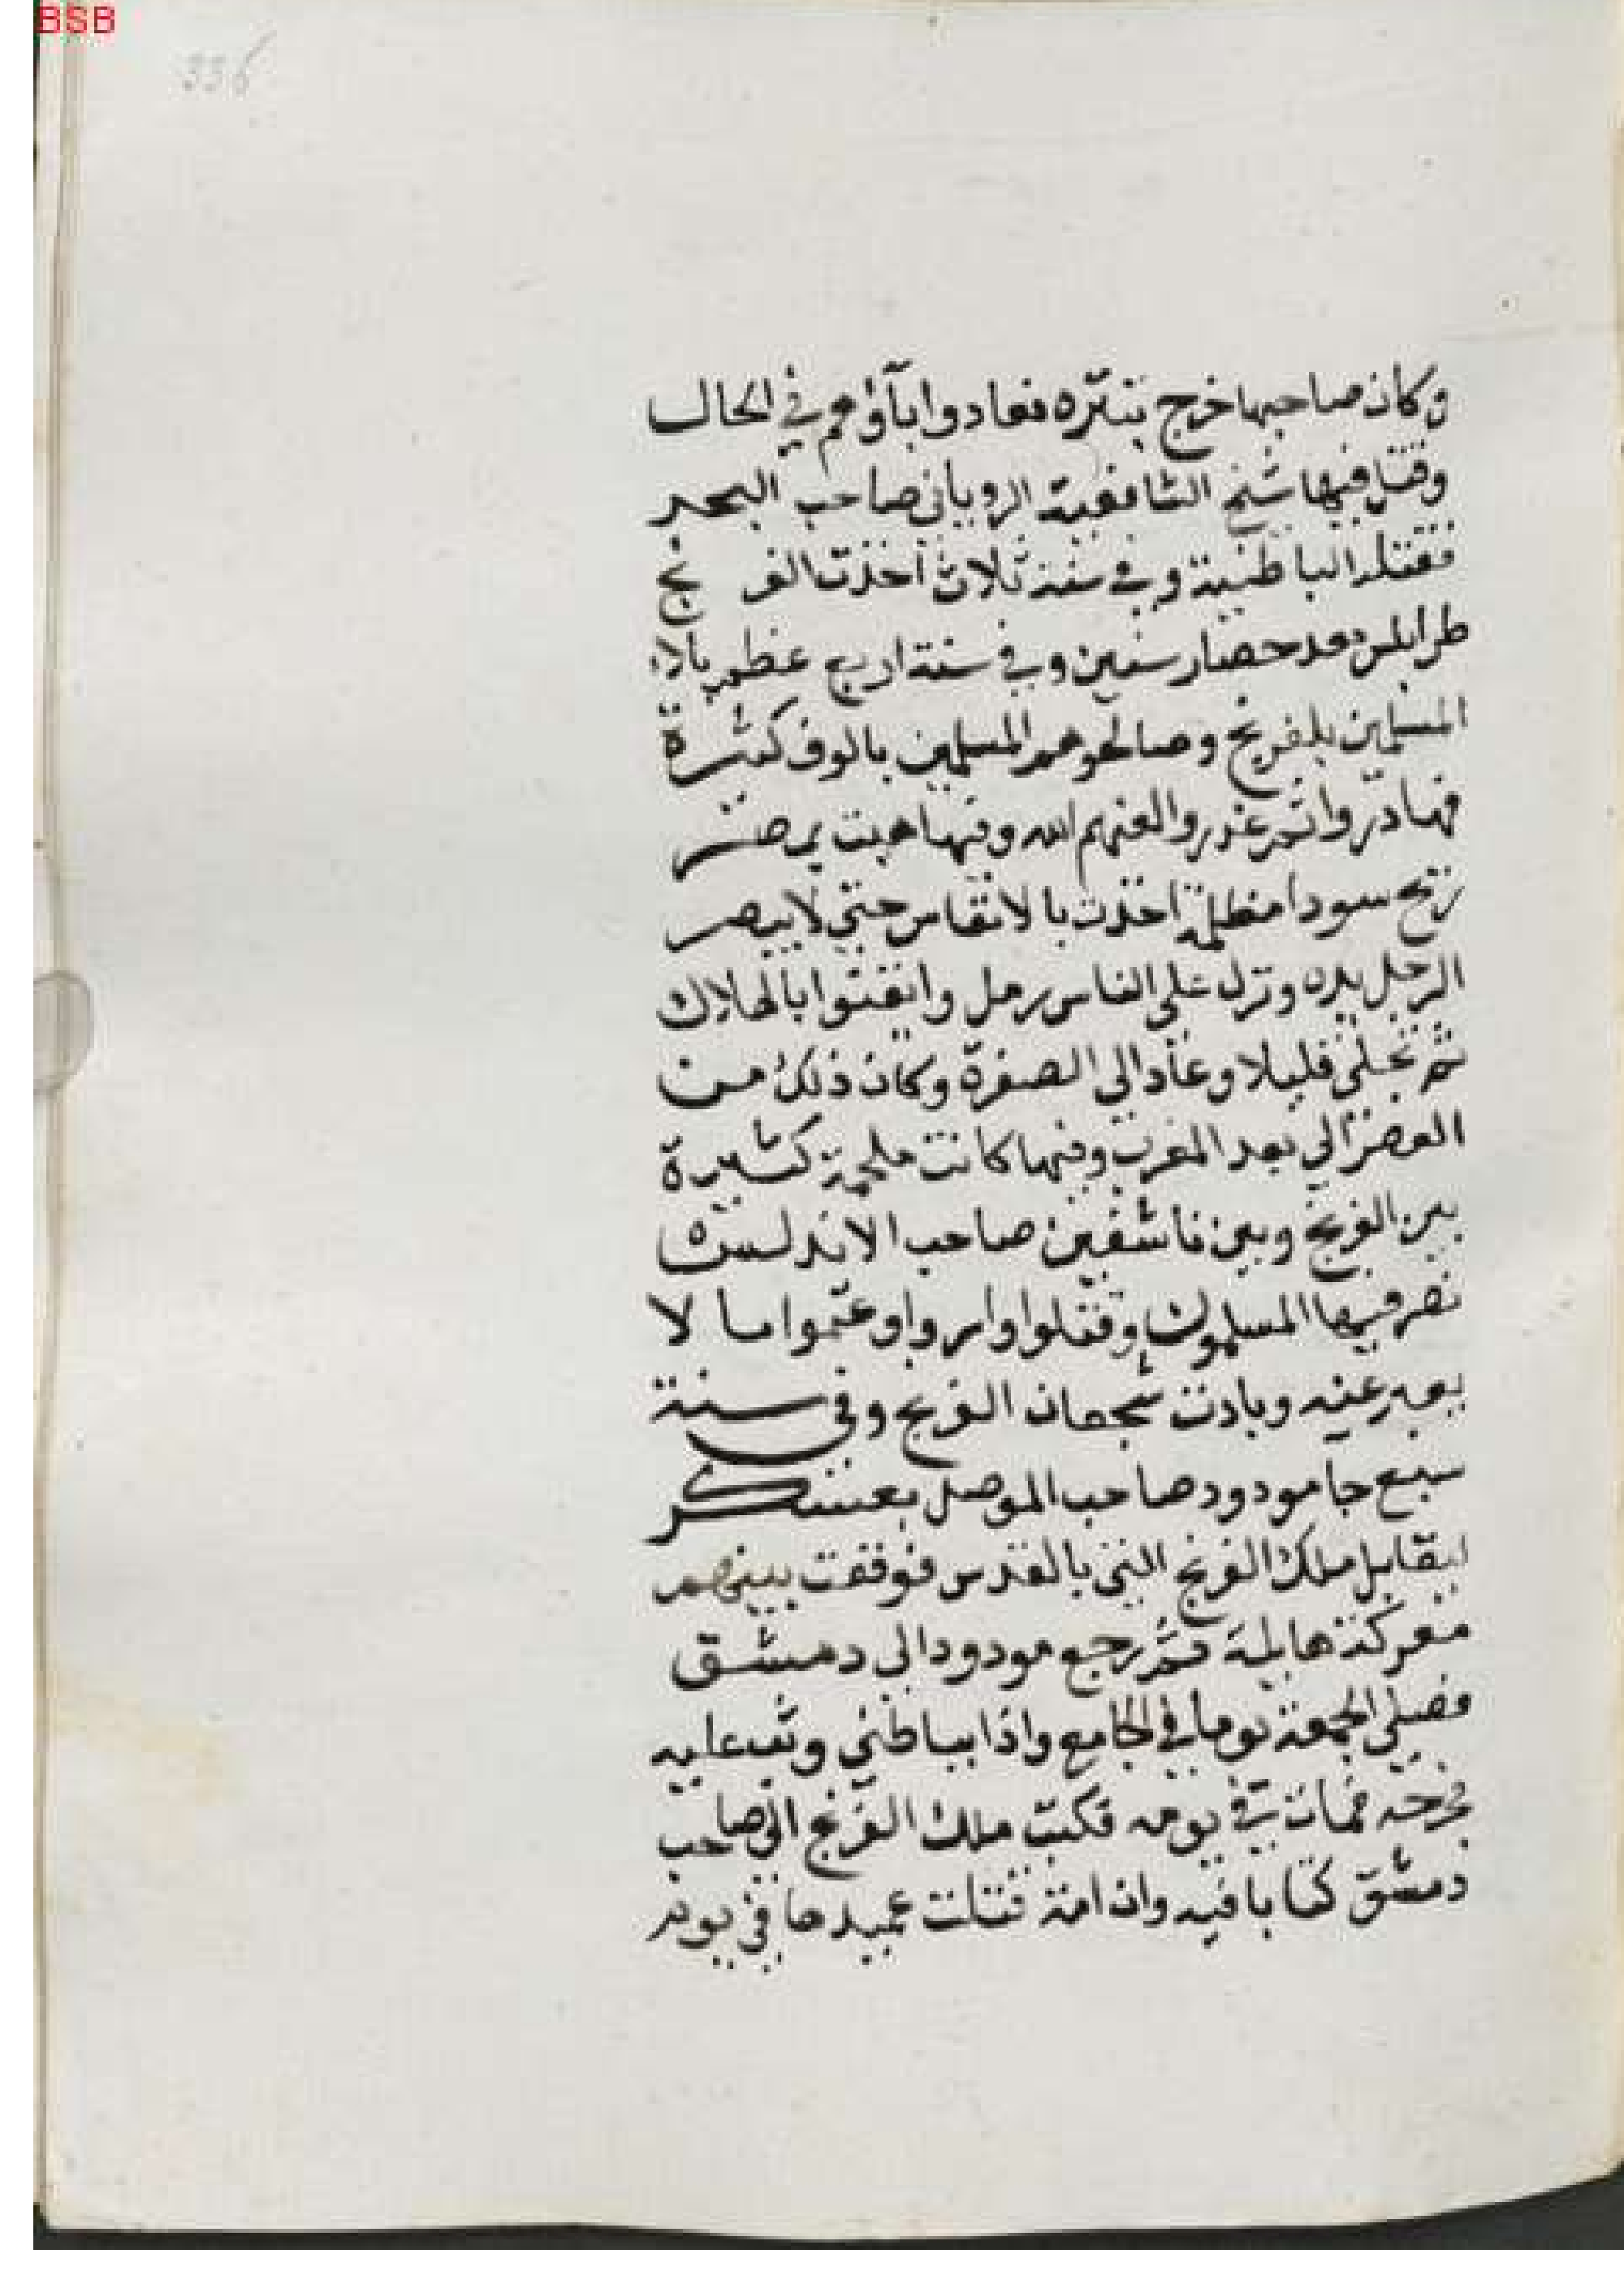 BSB
336
وكان صاحبها خرج يتنزه فعادوا بآؤهم في الحال
وقتل فيها شيخ الشافعية الروياني صاحب البحر
فقتله الباطنية وفي سنة ثلاث أخذت الفرنج
طرابلس بعد حصار سنين وفي سنة اربع عظم بلاء
المسلمين بلفرنج وصالحوهم المسلمين بالوف كثيرة
فهادروا ثم غدروا لعنهم الله وفيها هبت بمصر
ريح سودا مظلمة اخذت بالانفاس حتى لا يبصر
الرجل يده ونزل علي الناس رمل وايقنوا بالهلاك
ثم تجلى قليلا وعاد الي الصفرة وكان ذلك من
العصر الي بعد المغرب وفيها كانت ملحمة كثيرة
بين الفرنج وبين تاشفين صاحب الاندلس
نصر فيها المسلمون وقتلوا واسروا وغنموا ما لا
يعبر عنه وبادت شجعان الفرنج وفي سنة
سبع جا مودود صاحب الموصل بعسكر
ليقابل ملك الفرنج الذي بالقدس فوقعت بينهم
معركة هايلة ثم رجع مودود الى دمشق
فصلي الجمعة يوما في الجامع واذا بباطني وثب عليه
فجرحه فمات في يومه فكتب ملك الفرنج الي صاحب
دمشق كتابا فيه وان امة قتلت عميدها في يوم